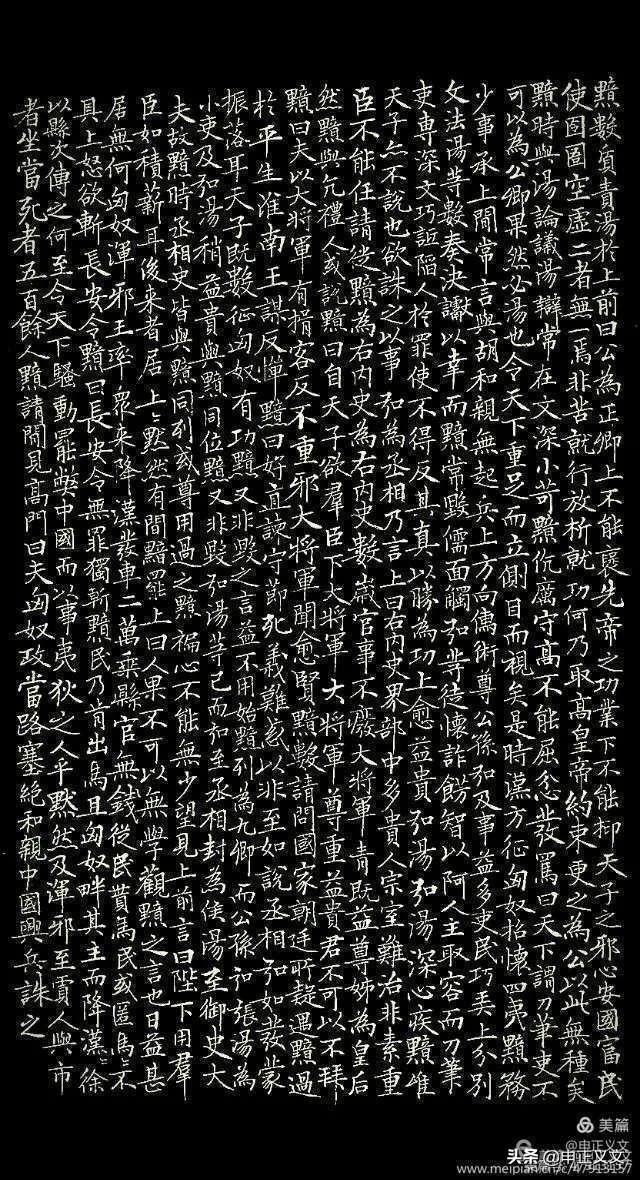 黯數質責湯於上前曰公為正卿上不能襃先帝之功業下不能抑天子之邪心安國富民
使囹圄空虛二者無一焉非苦就行放析就功何乃取高皇帝約束更之為公以此無種矣
黯時與湯論議湯辯常在文深小苛黯伉厲守高不能屈忿發罵曰天下謂刀筆吏不
可以為公卿果然必湯也令天下重足而立側目而視矣是時漢方征匈奴招懷四夷黯務
少事承上間常言與胡和親無起兵上方向儒術尊公孫弘及事益多吏民巧弄上分別
文法湯等數奏決讞以幸而黯常毀儒面觸弘等徒懷詐飾智以阿人主取容而刀筆
吏專深文巧詆陷人於罪使不得反其真以勝為功上愈益貴弘湯弘湯深心疾黯唯
天子亦不說也欲誅之以事弘為丞相乃言上曰右內史界部中多貴人宗室難治非素重
臣不能任請徙黯為右內史為右內史數歲官事不廢大將軍青既益尊姊為皇后
然黯與亢禮人或說黯曰自天子欲羣臣下大將軍大將軍尊重益貴君不可以不拜
黯曰夫以大將軍有揖客反不重邪大將軍聞愈賢黯數請問國家朝廷所疑遇黯過
於平生淮南王謀反憚黯曰好直諫守節死義難惑以非至如說丞相弘如發蒙
振落耳天子既數征匈奴有功黯又非毀之言益不用始黯列為九卿而公孫弘張湯為
小吏及弘湯稍益貴與黯同位黯又非毀弘湯等已而弘至丞相封為侯湯至御史大
夫故黯時丞相史皆與黯同列或尊用過之黯褊心不能無少望見上前言曰陛下用羣
臣如積薪耳後來者居上上默然有間黯罷上曰人果不可以無學觀黯之言也日益甚
居無何匈奴渾邪王率眾來降漢發車二萬乘縣官無錢從民貰馬民或匿馬不
具上怒欲斬長安令黯曰長安令無罪獨斬黯民乃肯出馬且匈奴畔其主而降漢漢徐
以縣次傳之何至令天下騷動罷弊中國而以事夷狄之人乎默然及渾邪至賈人與市
者坐當死者五百餘人黯請間見高門曰夫匈奴攻當路塞絕和親中國興兵誅之
美篇
@申正义文
头条 @申正义文
www.meipian.cn/c/47513157